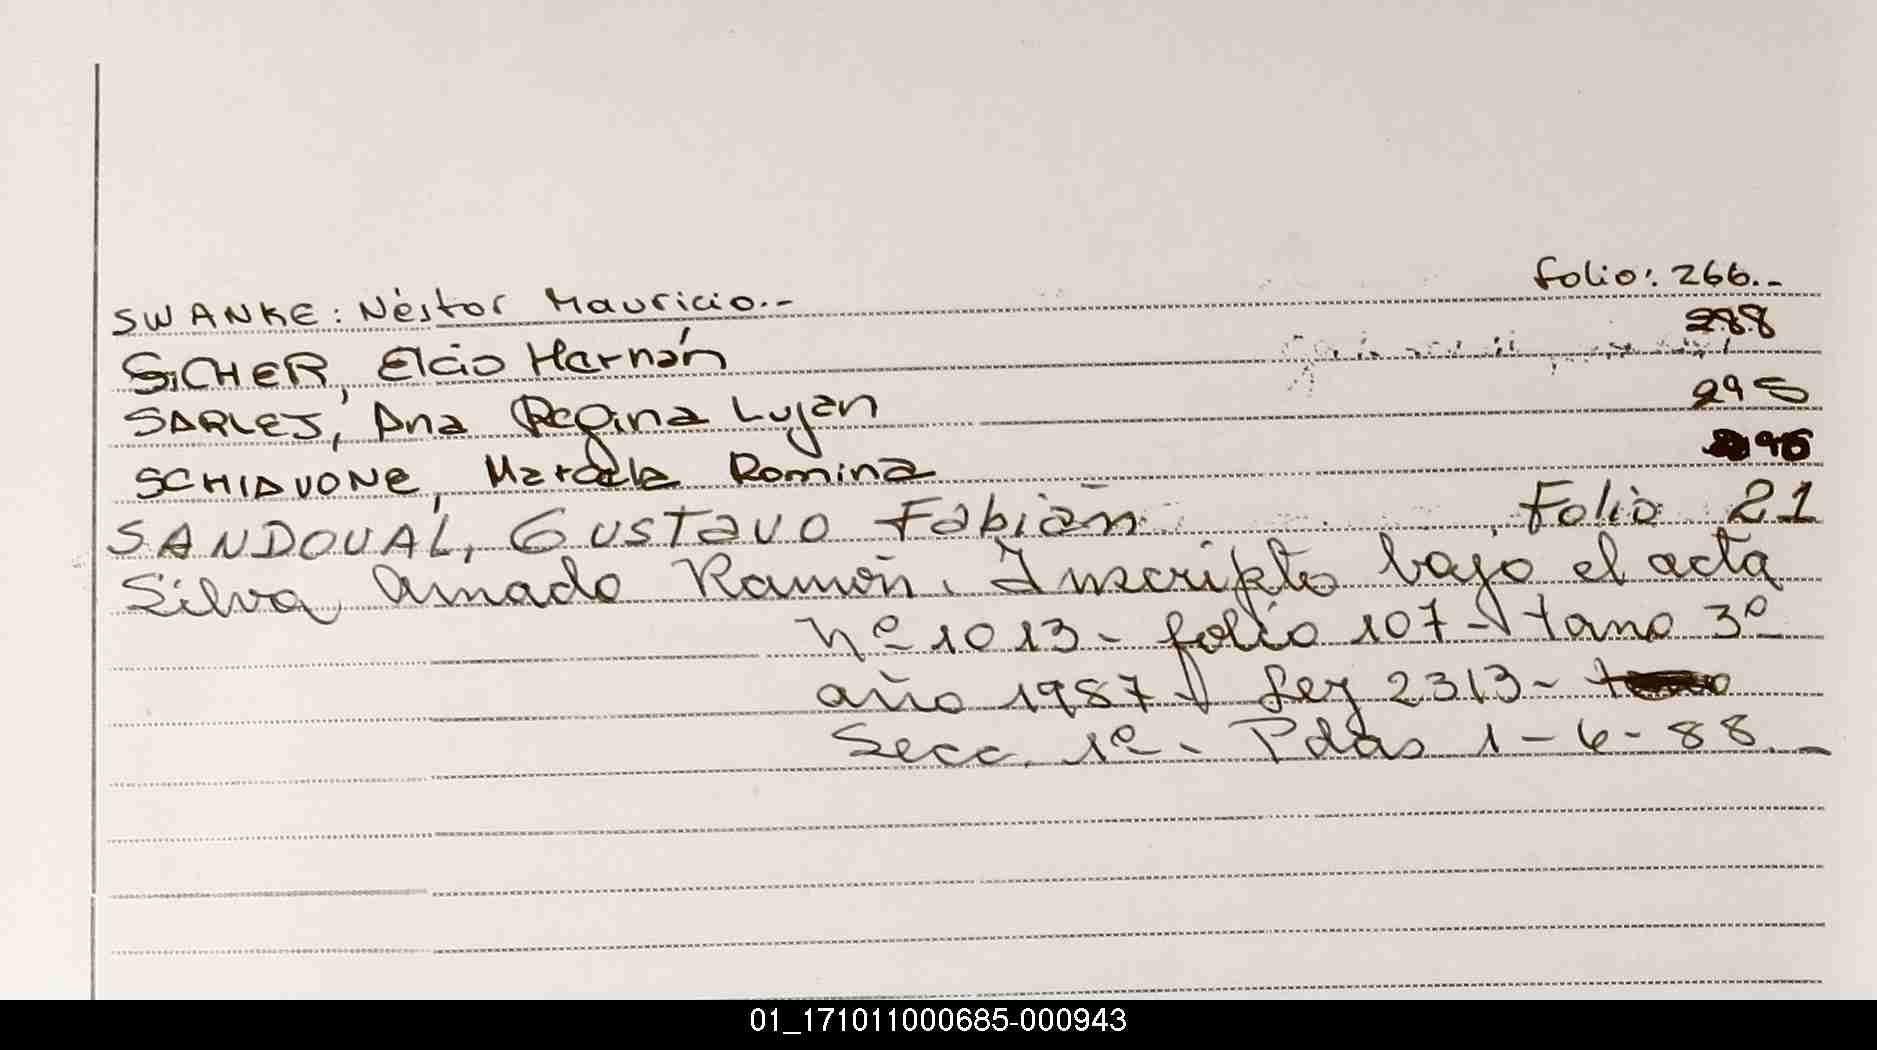 SWANKE: Néstor Mauricio.-- folio: 266.-
SICHER, Elcio Hernán 288
SARLEJ, Ana Regina Lujan 295
SCHIAVONE, Marcela Romina 296
SANDOVAL, GUSTAVO Fabián Folio 21
Silva, Amado Ramón. Inscripto bajo el acta
Nº 1013 - folio 107 - tomo 3º
año 1987 - Ley 2313 -
Secc. 1º - Pdas 1-6-88.-
01_171011000685-000943